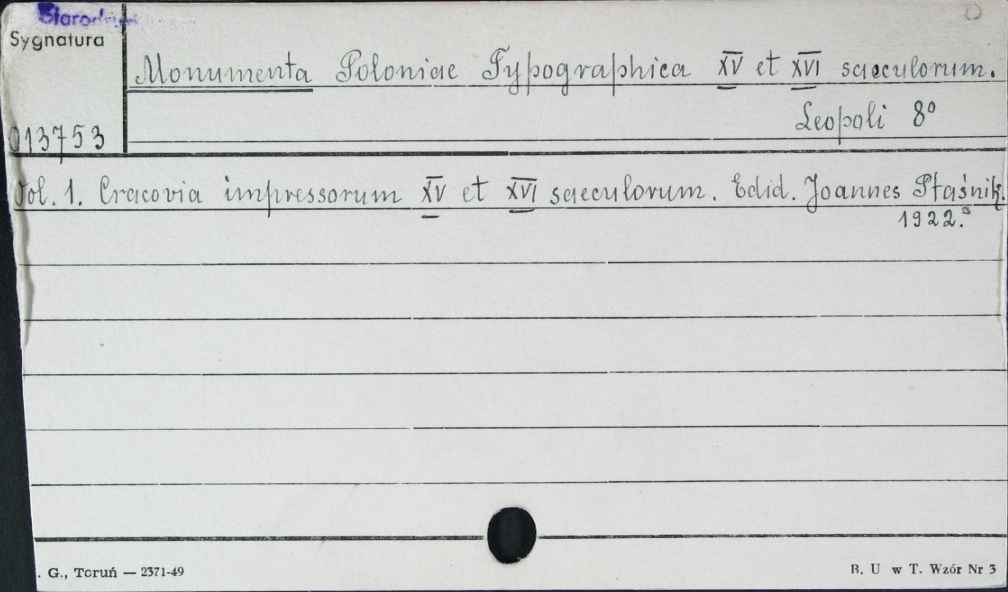 Sygnatura
Monumenta Poloniae Typographica XV et XVI saeculorum.
Leopoli 8°
013753
Vol. 1. Cracovia impressorum XV et XVI saeculorum. Edid. Joannes Ptaśnik.
1922.
. G., Toruń — 2371-49
B. U w T. Wzór Nr 3